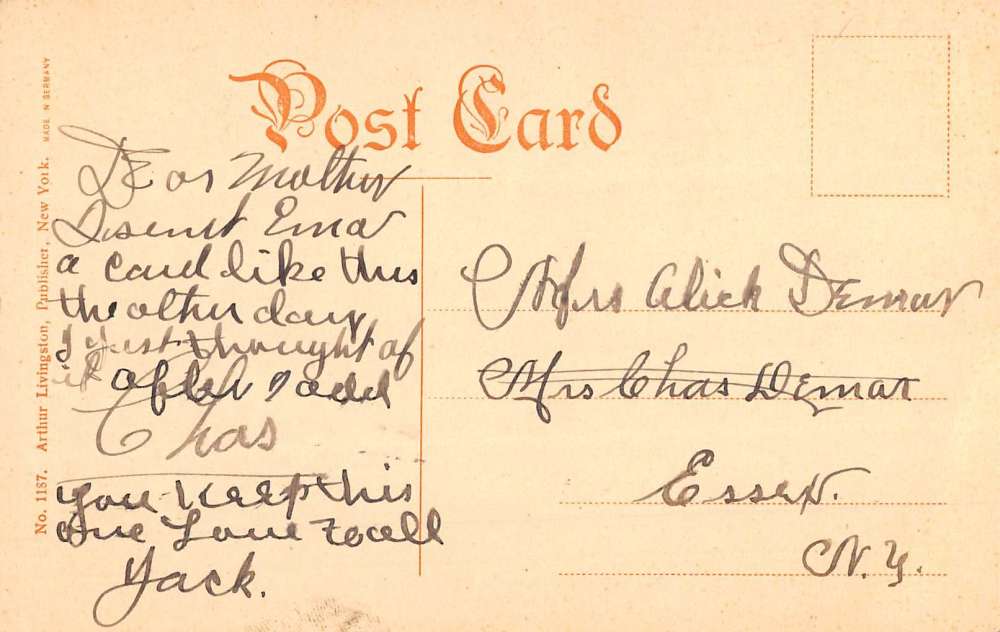 Post Card
MADE IN GERMANY
No. 1187. Arthur Livingston, Publisher, New York.
DEar Mother
I sent Ema
a card like this
the other day
I just thought of
it after I add
Chas
you keep this
one Love to all
Jack.
Mrs Alick DEmar
Mrs Chas DEmar
Essex.
N.Y.